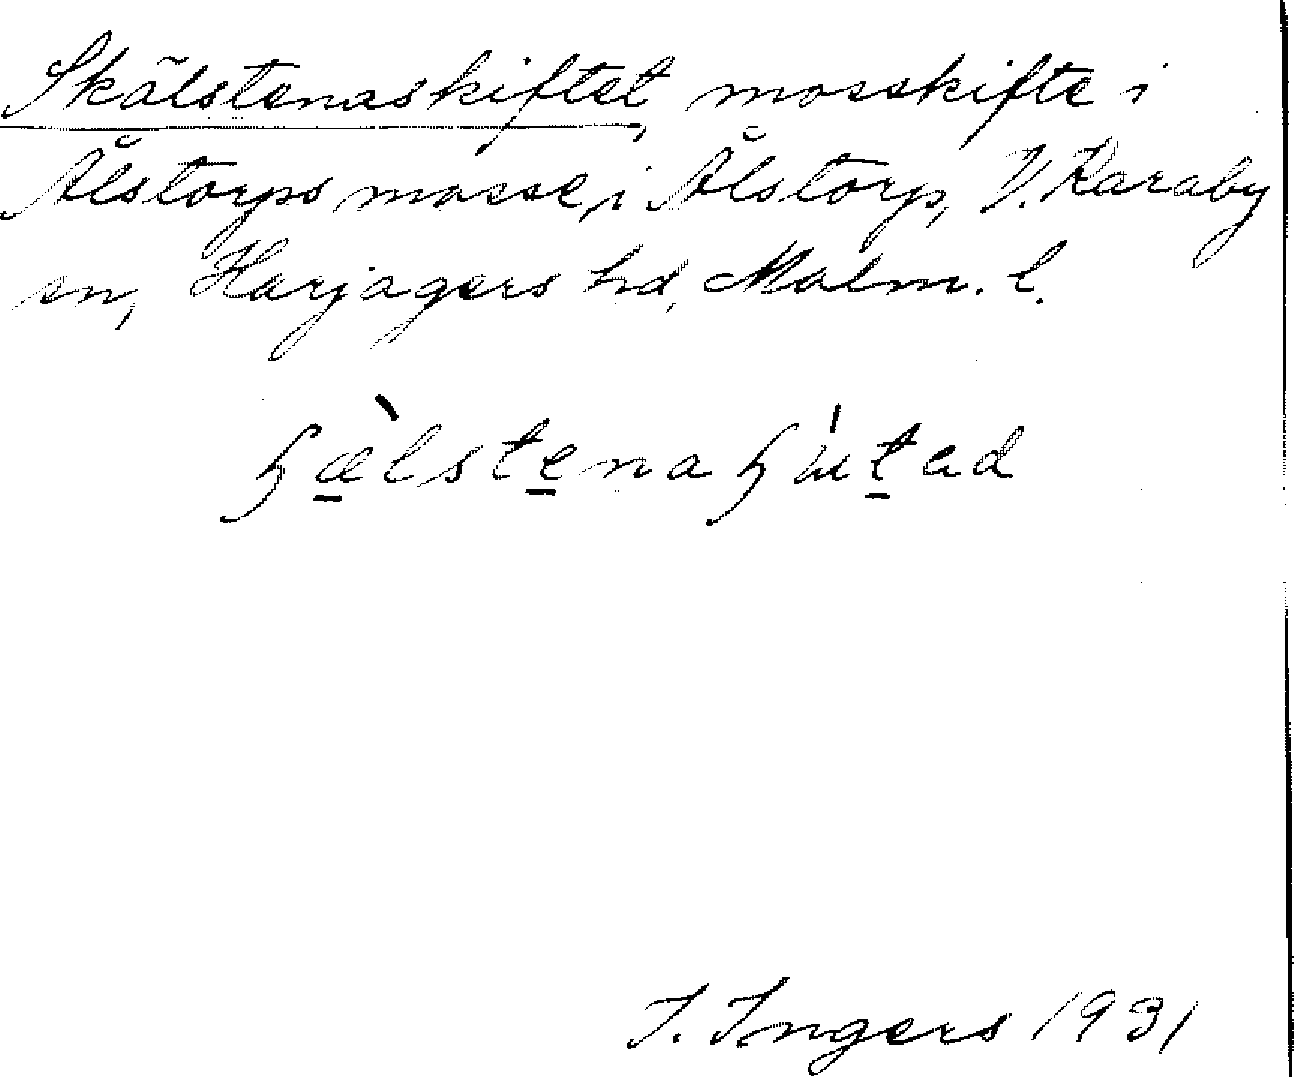 Skälstenaskiftet, mosskifte i
Ålstorps mosse, i Ålstorp, V. Karaby
sn, Harjagers hd, Malm. l.
I. Ingers 1931